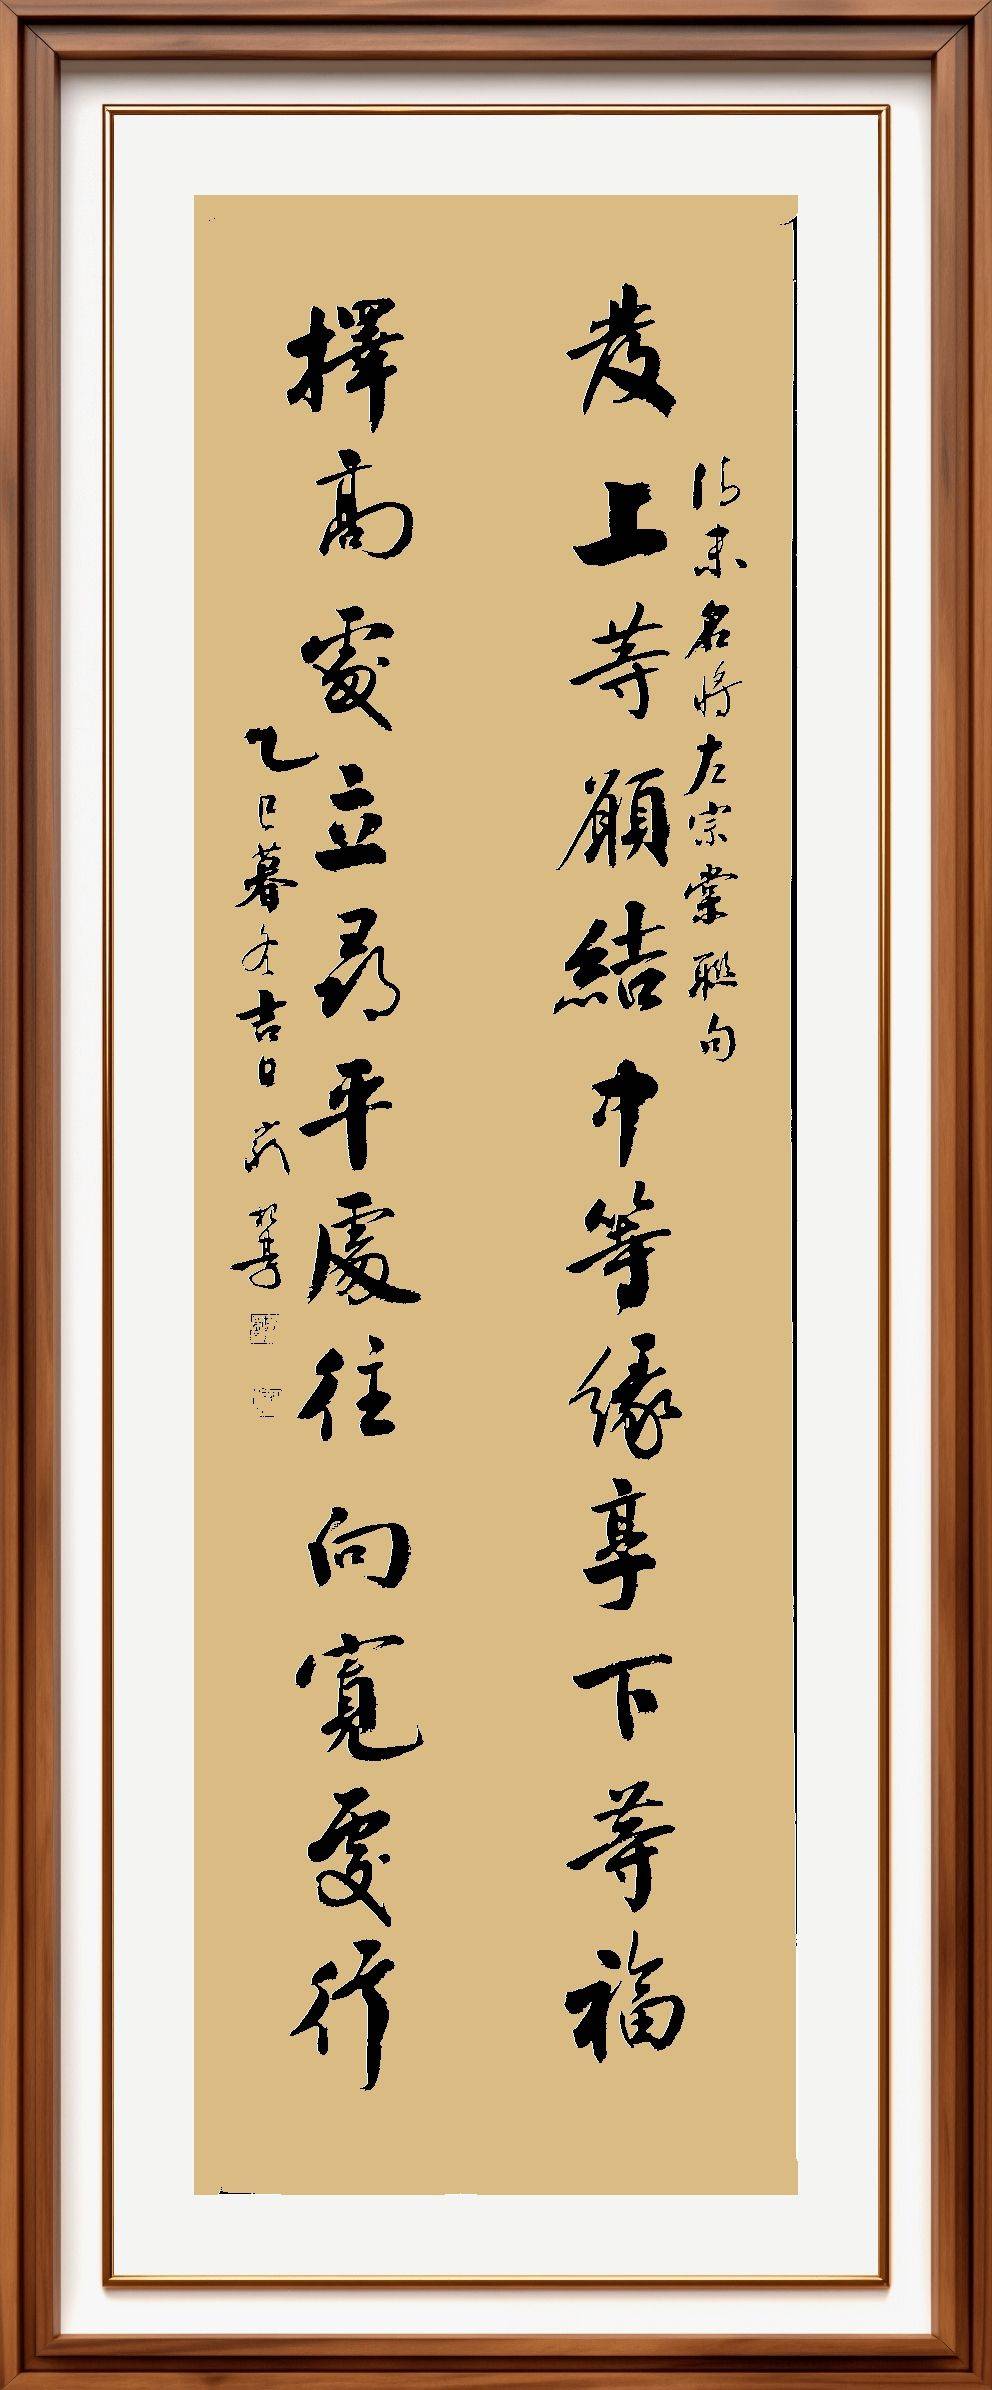 發上等願結中等緣享下等福
清末名將左宗棠聯句
擇高處立尋平處住向寬處行
乙巳暮冬吉日